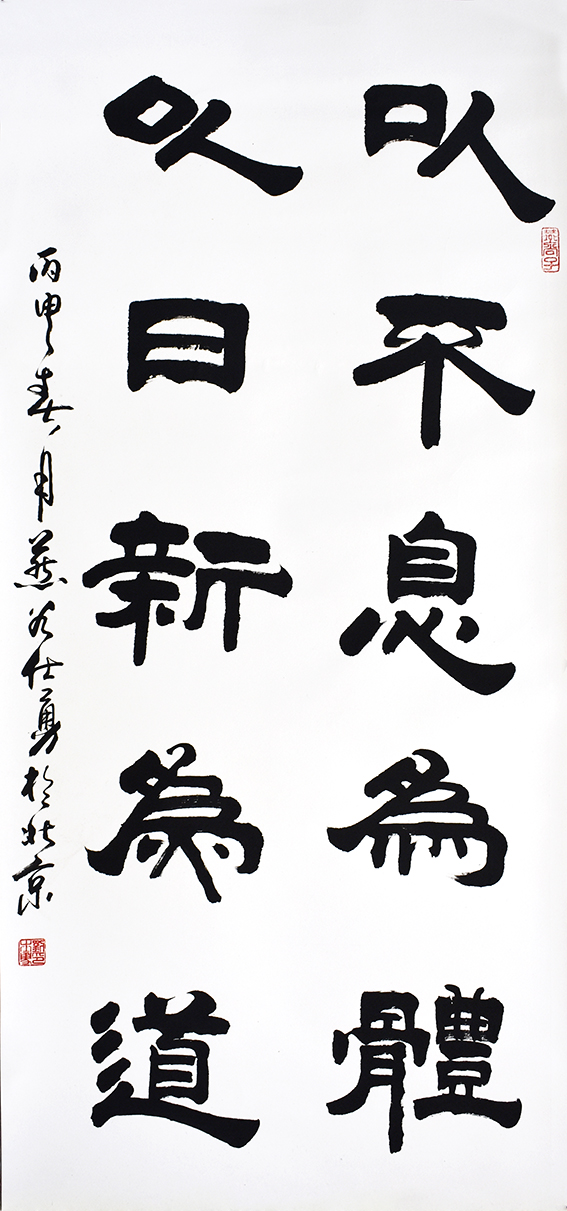 以不息為體
以日新為道
丙申春月燕谷仕勇於北京
燕谷子